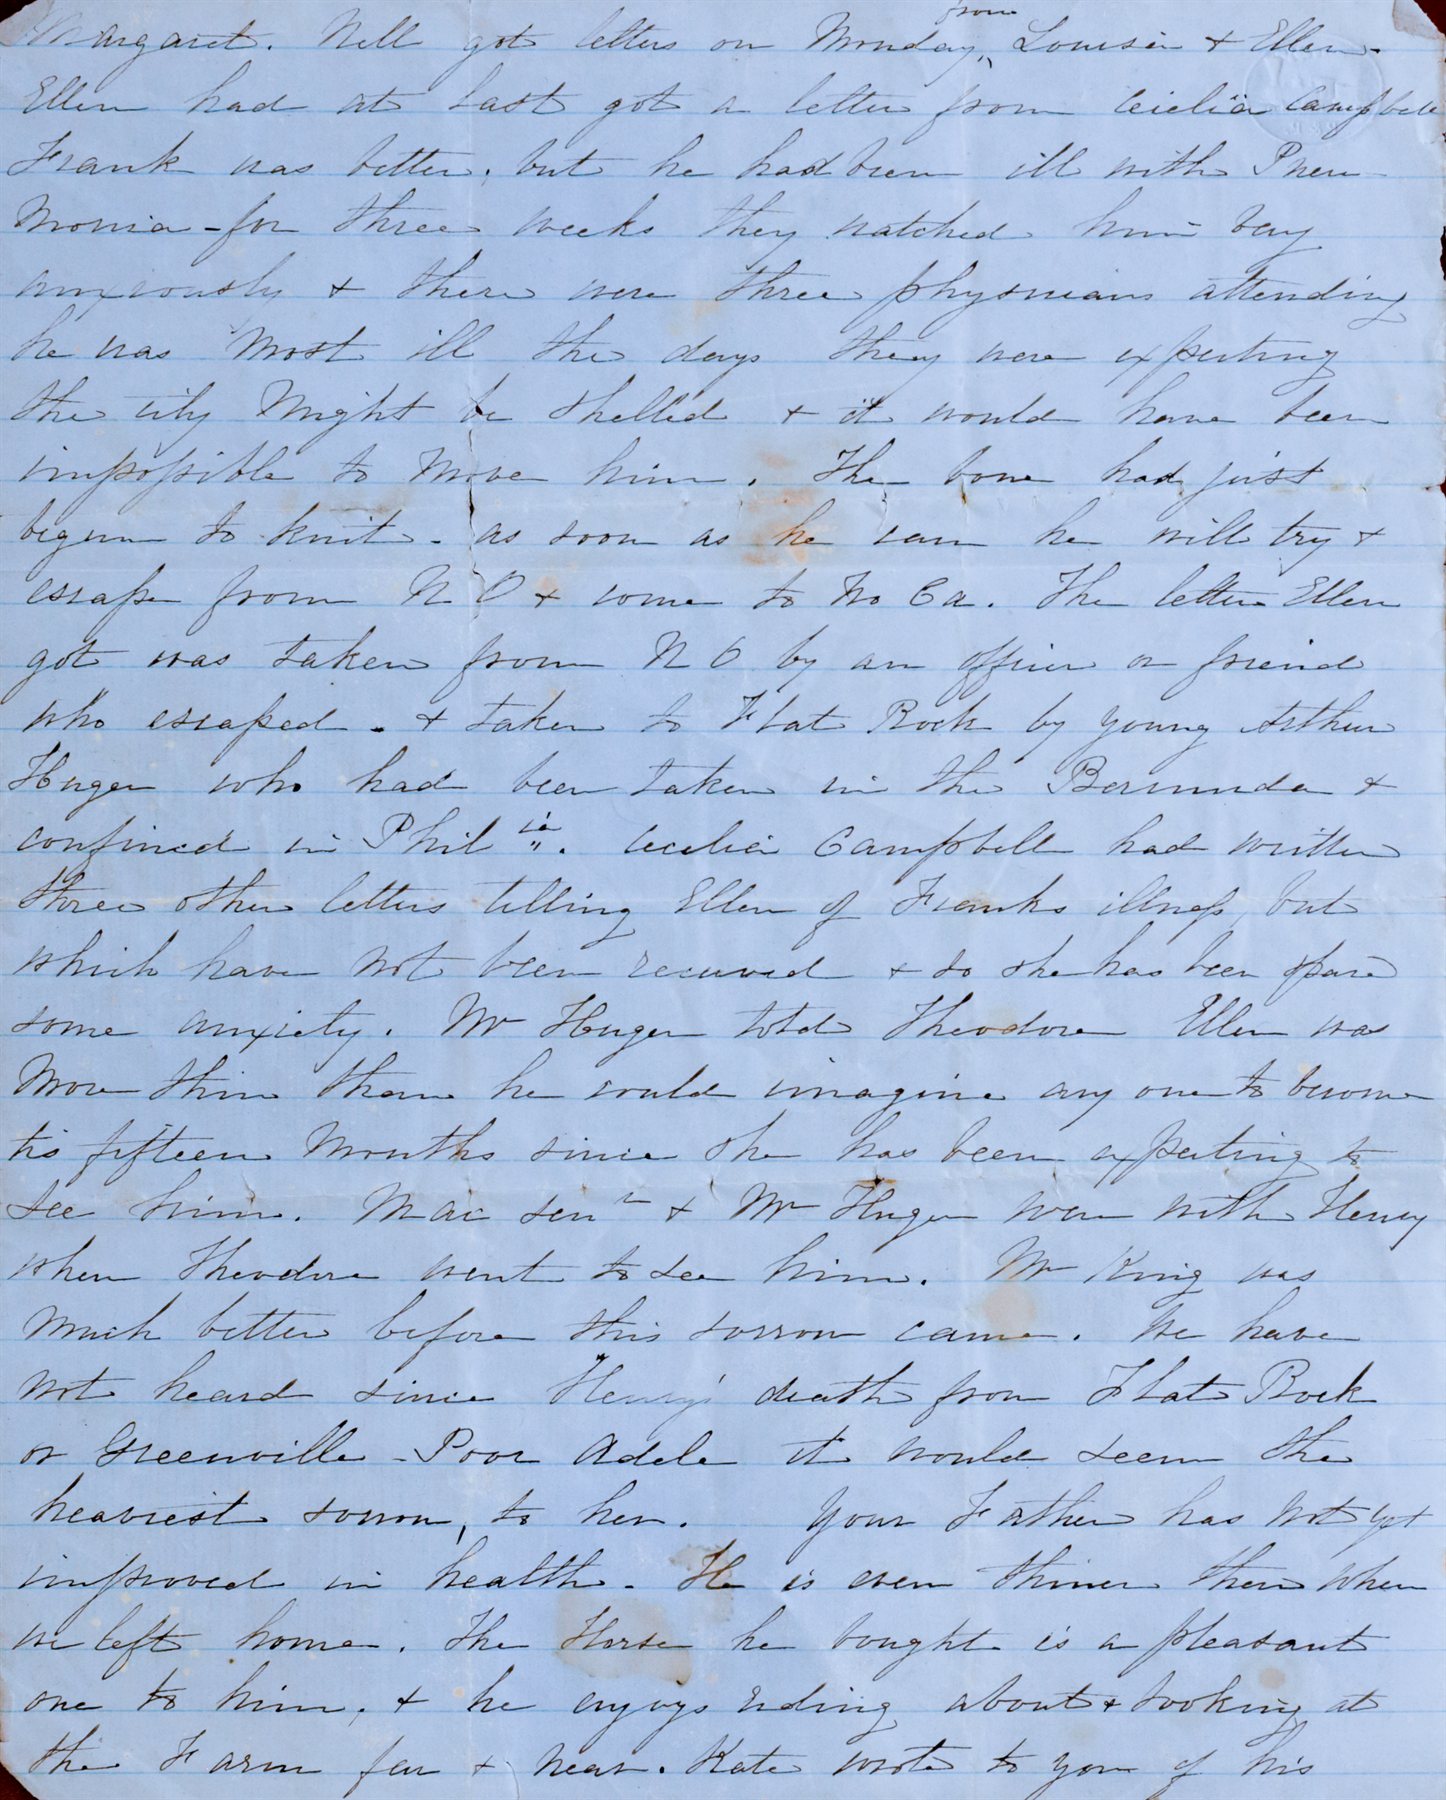 Margaret. Nell got letters on Monday, from Louisa & Ellen.
Ellen had at last got a letter from Cecilia Campbell
Frank was better. but he had been ill with Pneu-
monia - for three weeks they watched him very
anxiously & there were three physicians attending
he was most ill the days they were expecting
the city might be shelled & it would have been
impossible to move him. The bone had just
begun to knit - as soon as he can he will try &
escape from N O & come to No Ca. The letter Ellen
got was taken from N O by an officer or friend
who escaped. & taken to Flat Rock by young Arthur
Huger who had been taken in the Bermuda &
confined in Phil ia. Cecelia Campbell had written
three other letters telling Ellen of Franks illness, but
which have not been received & so she has been spared
some anxiety. Mr Huger told Theodore Ellen was
more thin than he could imagine any one to become
tis fifteen months since she has been expecting to
see him. Mac Senr & Mr Huger were with Henry
when Theodore went to see him. Mr King was
much better before this sorrow came. We have
not heard since Henry's death from Flat Rock
or Greenville - Poor Adele it would seem the
heaviest sorrow, to her. Your Father has not yet
improved in health. He is even thiner then when
we left home. The Horse he bought is a pleasant
one to him, & he enjoys riding about & looking at
the Farm far & near. Kate wrote to you of his